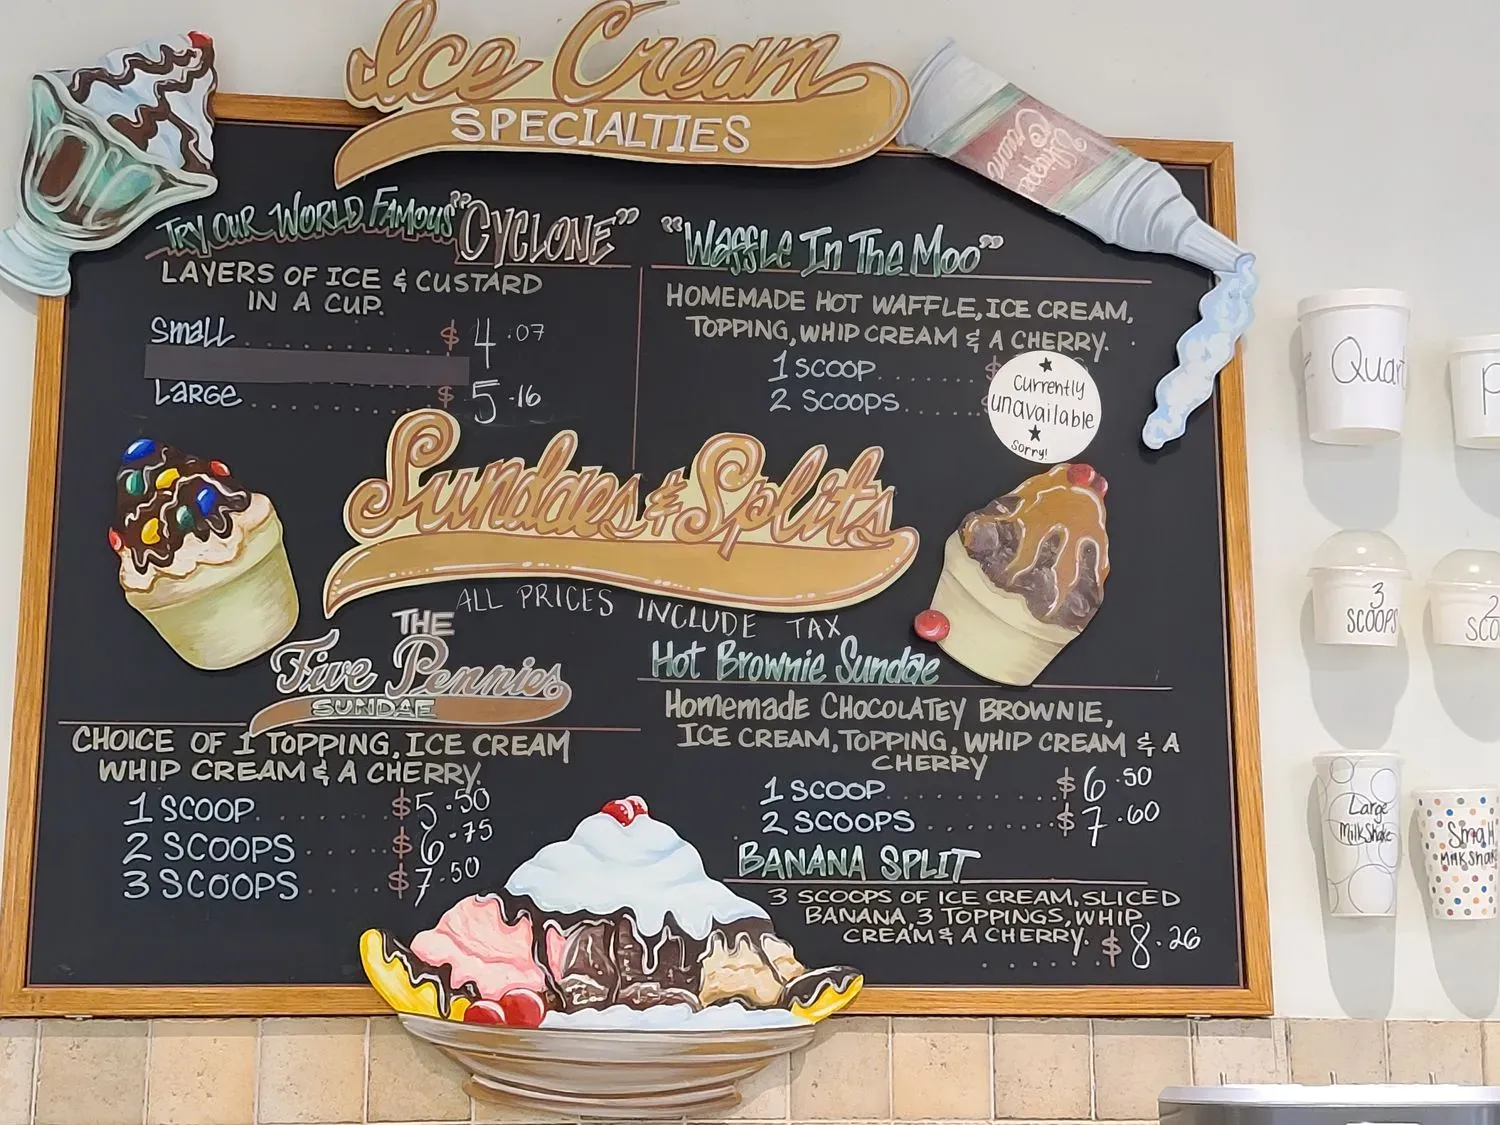 Ice Cream
SPECIALTIES
Whipped
Cream
TRY OUR WORLD FAMOUS "CYCLONE"
LAYERS OF ICE & CUSTARD
IN A CUP.
SMALL ........ $ 4.07
LARGE ........ $ 5.16
"Waffle In The Moo"
HOMEMADE HOT WAFFLE, ICE CREAM,
TOPPING, WHIP CREAM & A CHERRY.
1 SCOOP ........ $
2 SCOOPS ........ $
Currently
unavailable
Sorry!
Sundaes & Splits
ALL PRICES INCLUDE TAX
THE
Five Pennies
SUNDAE
CHOICE OF 1 TOPPING, ICE CREAM
WHIP CREAM & A CHERRY.
1 SCOOP ........ $5.50
2 SCOOPS ...... $6.75
3 SCOOPS ...... $7.50
Hot Brownie Sundae
Homemade CHOCOLATEY BROWNIE,
ICE CREAM, TOPPING, WHIP CREAM & A
CHERRY
1 SCOOP ........ $6.50
2 SCOOPS ........ $7.60
BANANA SPLIT
3 SCOOPS OF ICE CREAM, SLICED
BANANA, 3 TOPPINGS, WHIP
CREAM & A CHERRY. $8.26
Quart
3
SCOOPS
2
SCO
Large
MilkShake
Small
MilkShake